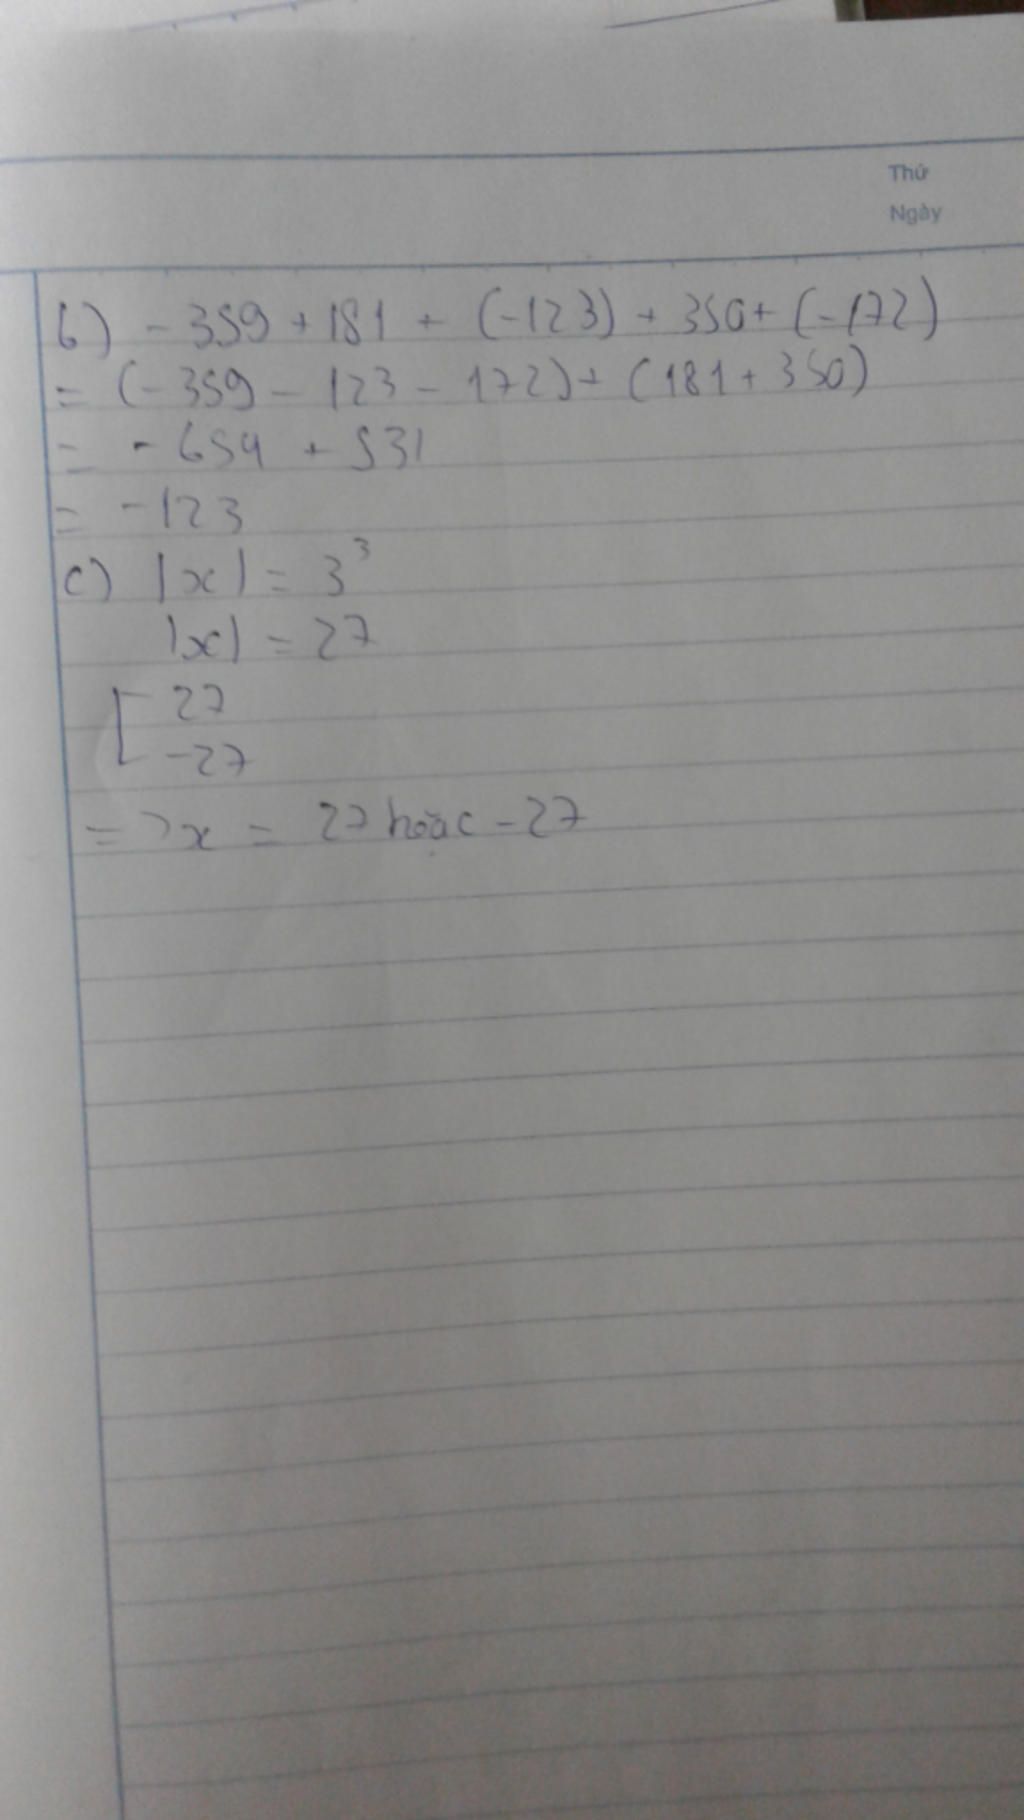 Thứ
Ngày
b) -359 + 181 + (-123) + 350 + (-172)
= (-359 - 123 - 172) + (181 + 350)
= -654 + 531
= -123
c) |x| = 3³
|x| = 27
[ 27
-27
=> x = 27 hoặc -27